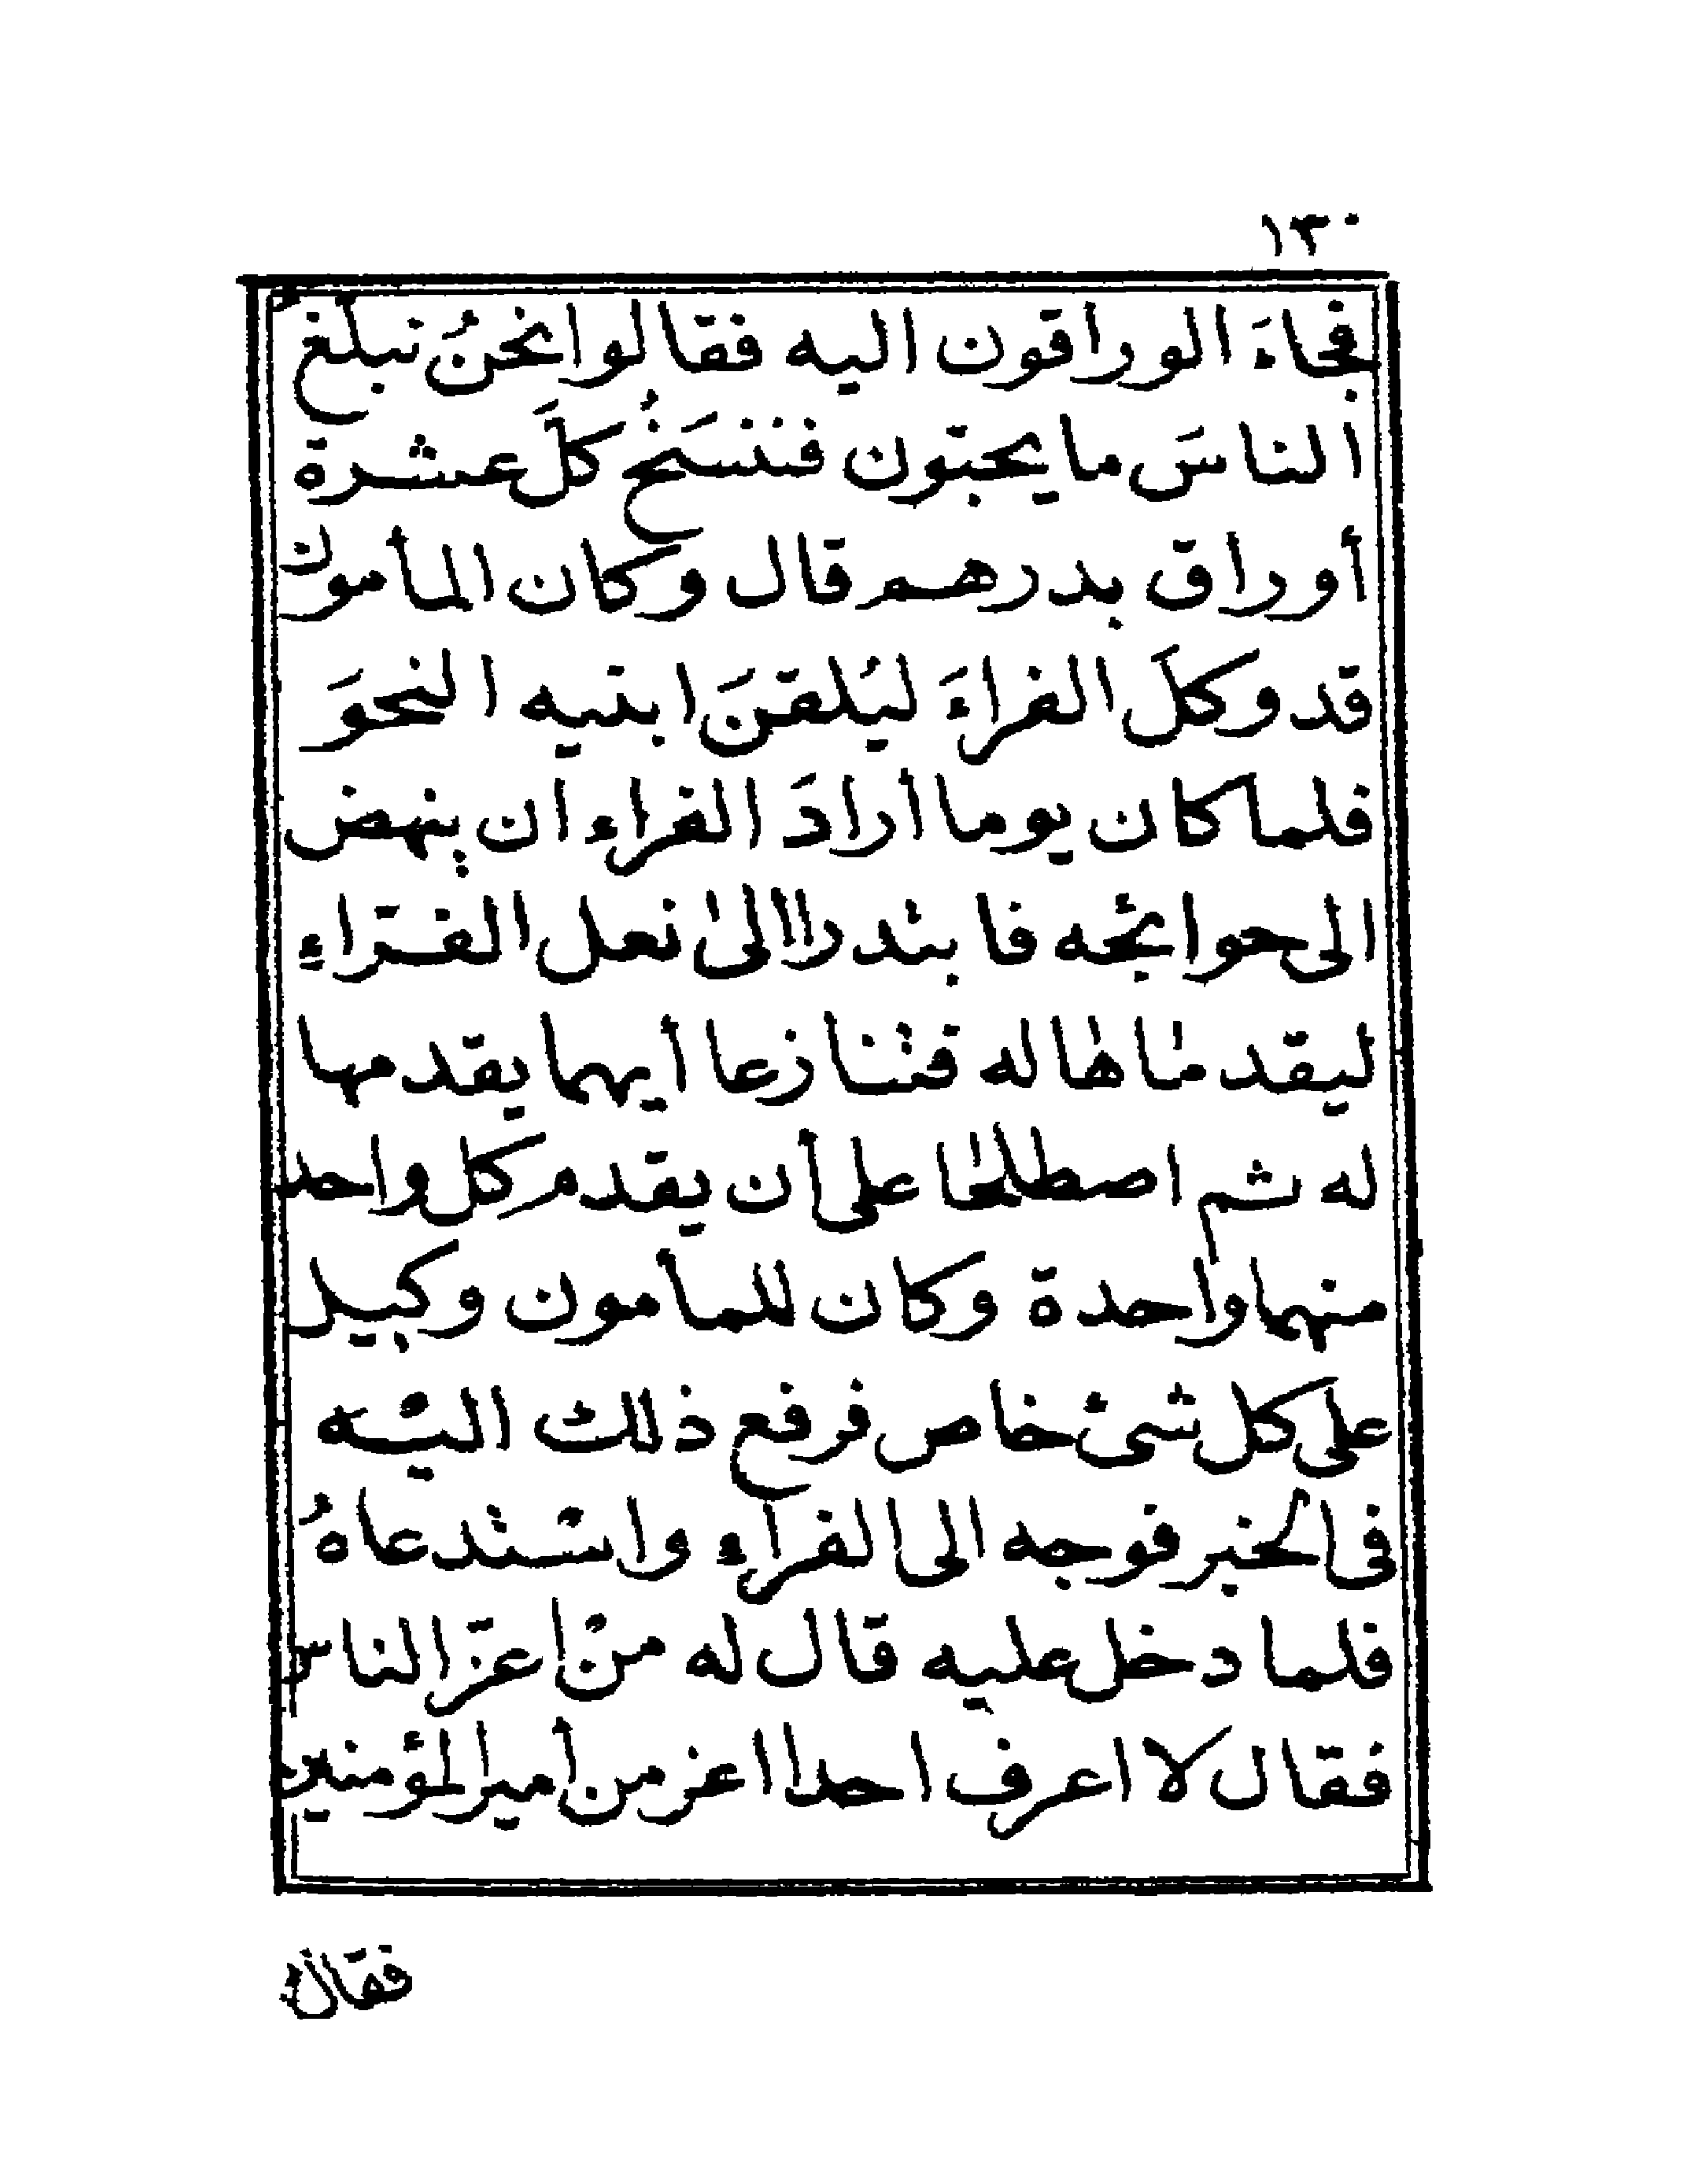 ١٣٠
فجاءَ الوراقون اليه فقالوا نحنُ نبلغ
الناسَ ما يحبّون فننسَخُ كلَّ عشرة
أوراق بدرهم قال وكان المأمون
قد وكلَ الفراءَ ليُلقنَ ابنيه النحوَ
فلما كان يوما أرادَ الفراء ان ينهض
الى حوائجه فابتدرا الى نعل الفرّاءِ
ليقدماها له فتنازعا أيهما يقدمها
له ثم اصطلحا على أن يقدم كل واحد
منهما واحدة وكان للمأمون وكيل
على كل شئ خاص فرفع ذلك اليْه
فى الخبر فوجه الى الفراء واسْتدعاهُ
فلما دخل عليه قال له منْ اعزّ الناس
فقال لا اعرف احدا اعز من أمير المؤمنين
فقال